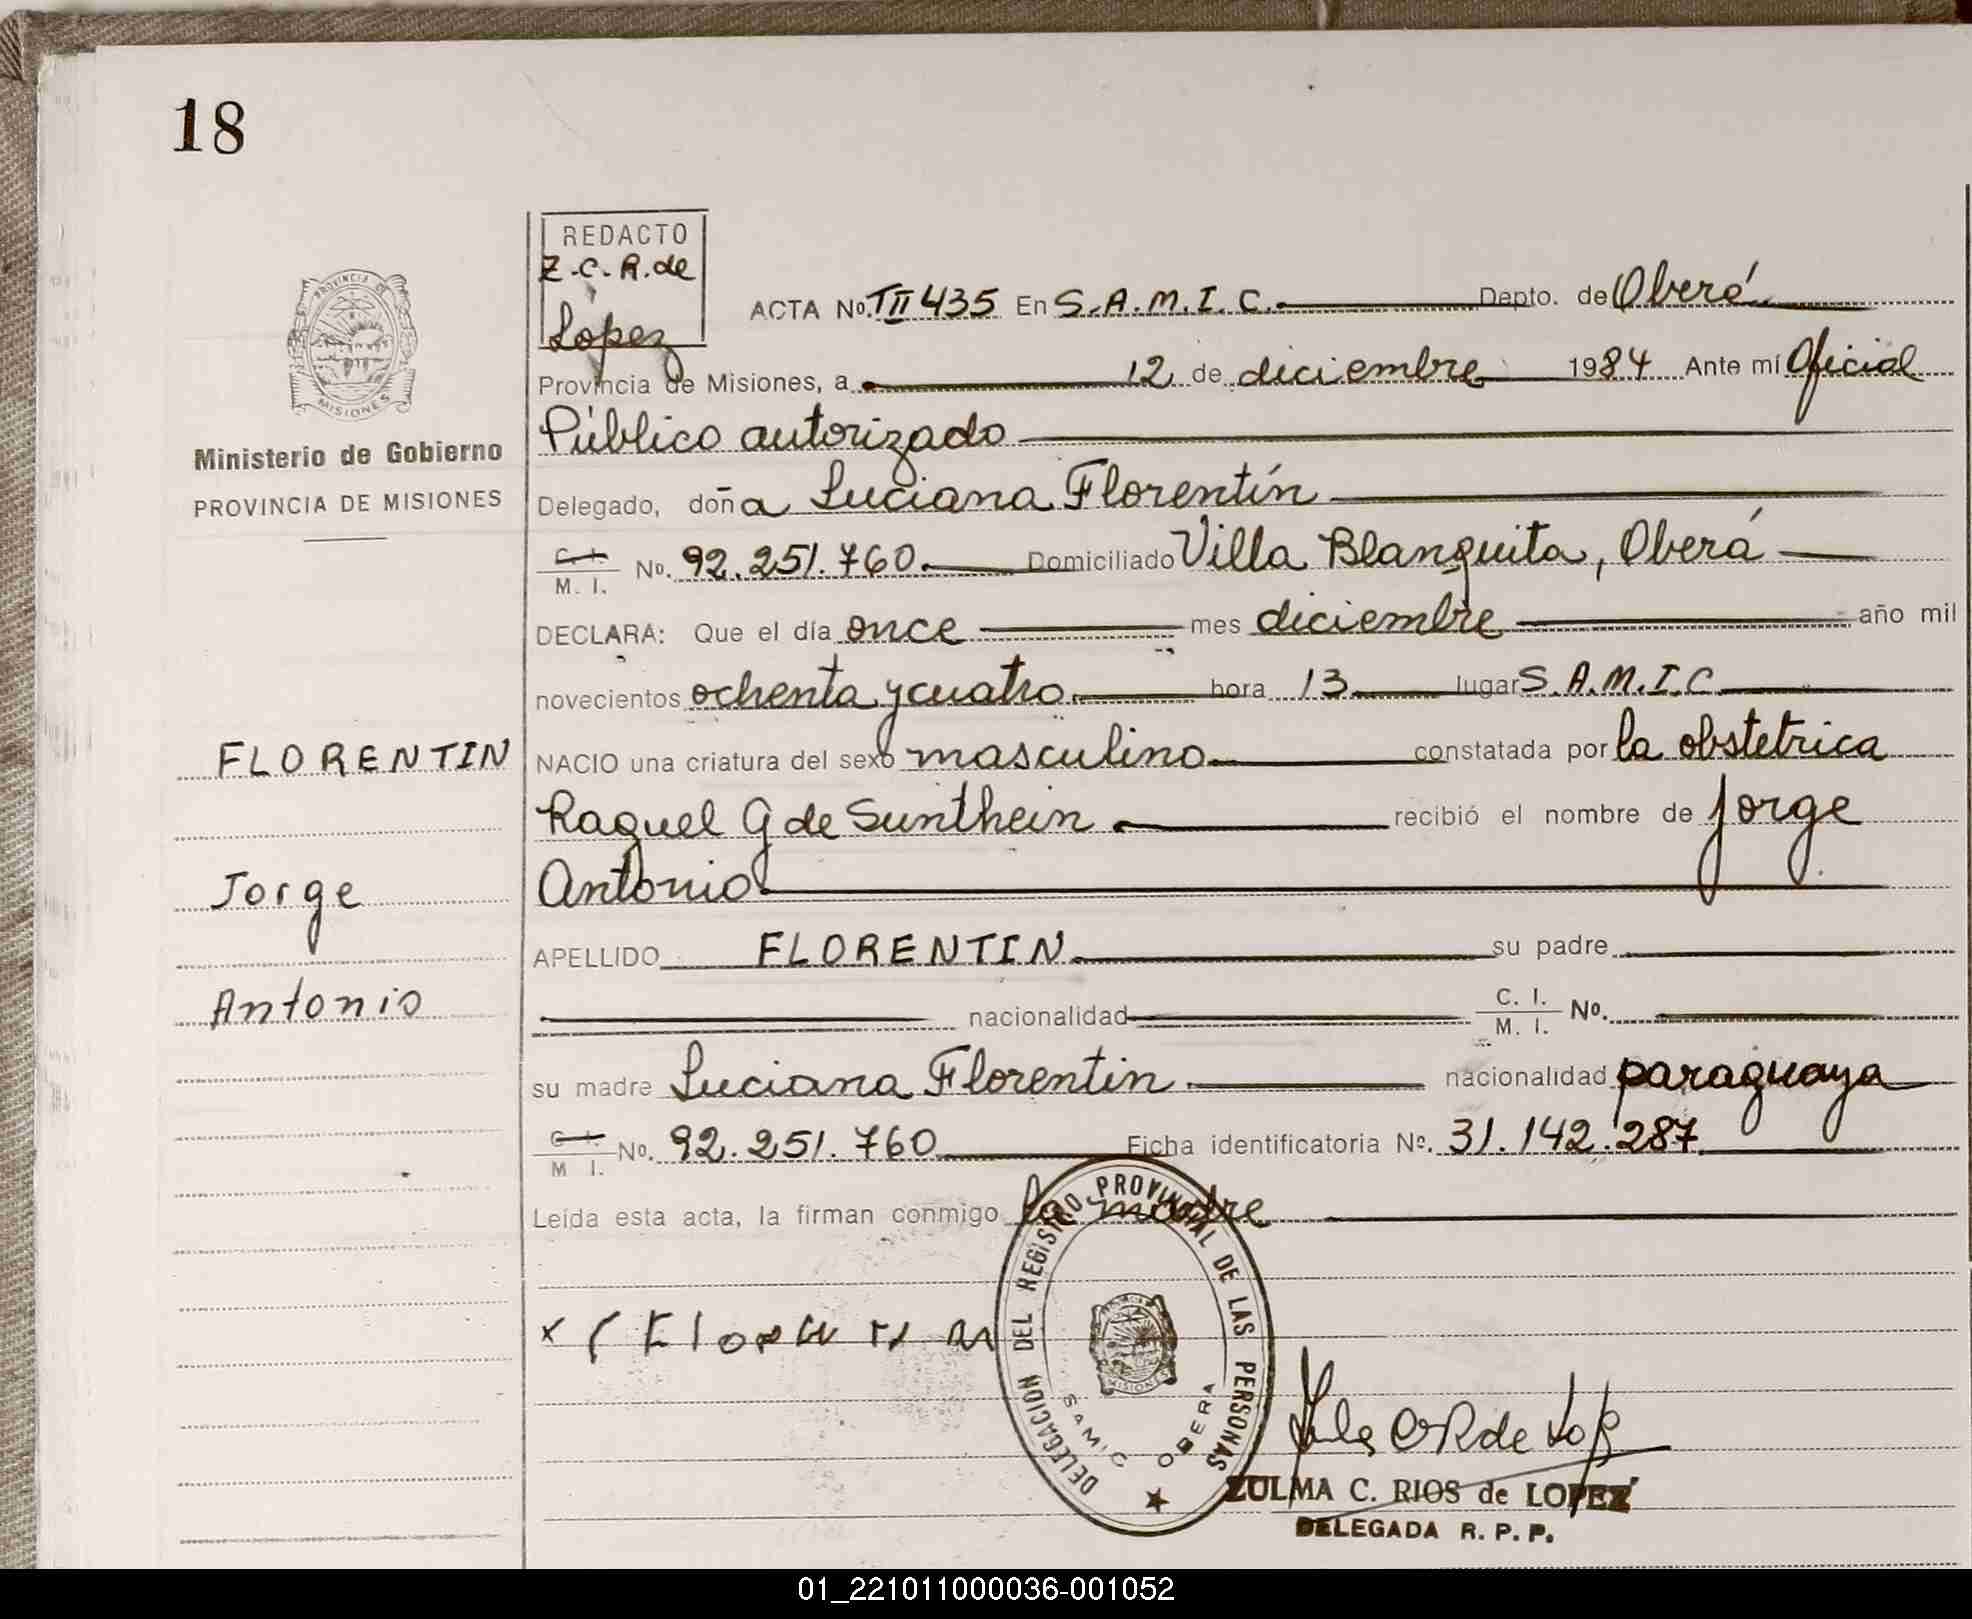 18
REDACTO
Z.C.R. de
Lopez
PROVINCIA DE
MISIONES
Ministerio de Gobierno
PROVINCIA DE MISIONES
ACTA No. TII 435 En S.A.M.I.C. Depto. de Oberá
Provincia de Misiones, a 12 de diciembre 1984 Ante mí Oficial
Público autorizado
Delegado, doña Luciana Florentín
C. I. M. I. No. 92.251.760 Domiciliado Villa Blanquita, Oberá
DECLARA: Que el día once mes diciembre año mil
novecientos ochenta y cuatro hora 13 lugar S.A.M.I.C
FLORENTIN
NACIO una criatura del sexo masculino constatada por la obstetrica
Raquel G de Sunthein recibió el nombre de Jorge
Jorge
Antonio
APELLIDO FLORENTIN su padre
Antonio
nacionalidad C. I. M. I. No.
su madre Luciana Florentin nacionalidad paraguaya
C. I. M I. No. 92.251.760 Ficha identificatoria No. 31.142.287
Leída esta acta, la firman conmigo la madre
DELEGACION DEL REGISTRO PROVINCIAL DE LAS PERSONAS
MISIONES
SAMIC OBERA
ZULMA C. RIOS de LOPEZ
DELEGADA R. P. P.
01_221011000036-001052